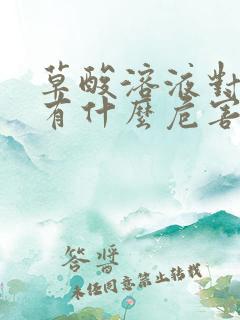 草酸溶液對
有什麼危害
答案
未經同意禁止轉載